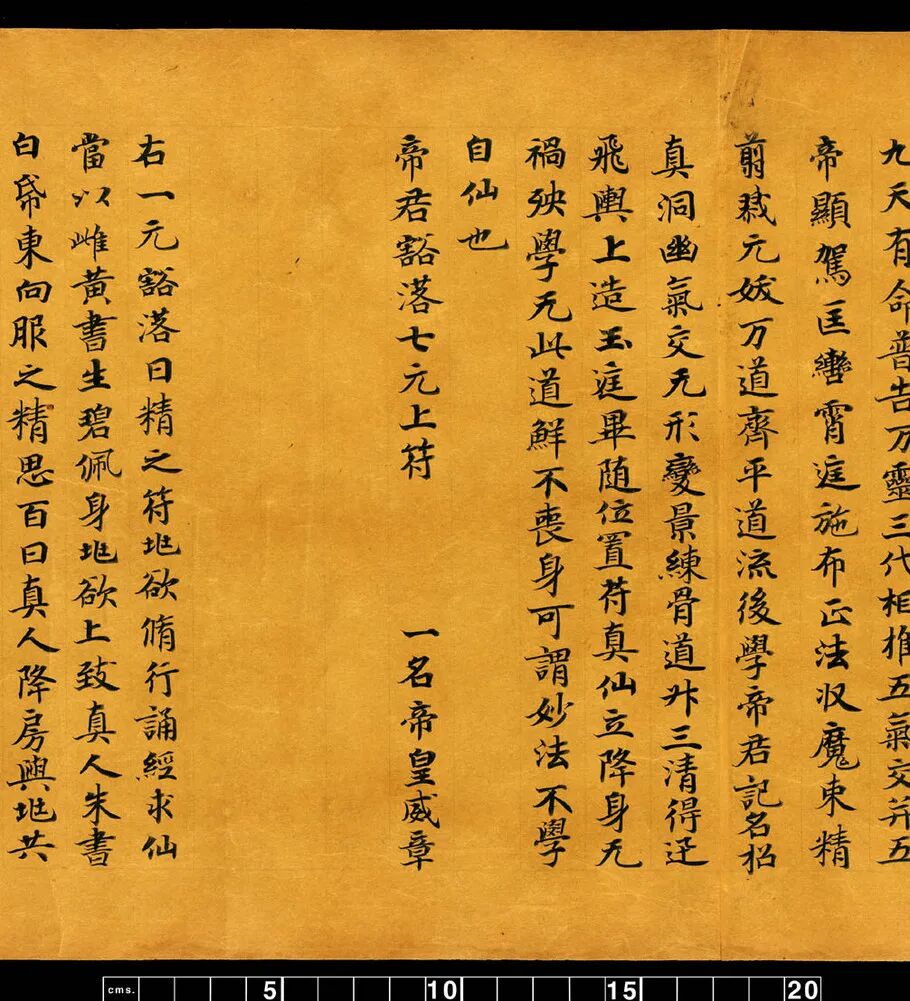 九天有命普告万靈三代相推五氣交并五
帝顯駕匡轡霄庭施布正法収魔束精
翦戮元妖万道齊平道流後學帝君記名招
真洞幽氣交无形變景練骨道升三清得迁
飛輿上造玉庭畢随位置苻真仙立降身无
禍殃學无此道鮮不喪身可謂妙法不學
自仙也
帝君豁落七元上苻 一名帝皇威章
右一元豁落日精之苻地欲脩行誦經求仙
當以雌黄書生碧佩身地欲上致真人朱書
白帋東向服之精思百日真人降房與地共
cms. 5 10 15 20